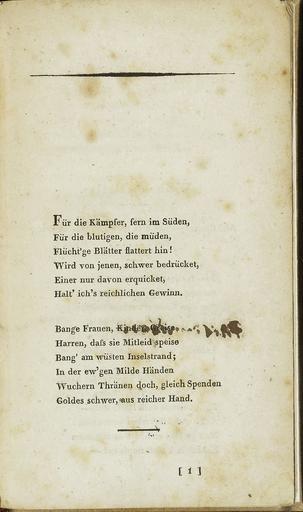 Für die Kämpfer, fern im Süden,
Für die blutigen, die müden,
Flücht'ge Blätter flattert hin!
Wird von jenen, schwer bedrücket,
Einer nur davon erquicket,
Halt' ich's reichlichen Gewinn.
Bange Frauen,
Harren, daſs sie Mitleid speise
Bang' am wüsten Inselstrand;
In der ew'gen Milde Händen
Wuchern Thränen doch, gleich Spenden
Goldes schwer, aus reicher Hand.
[ 1 ]